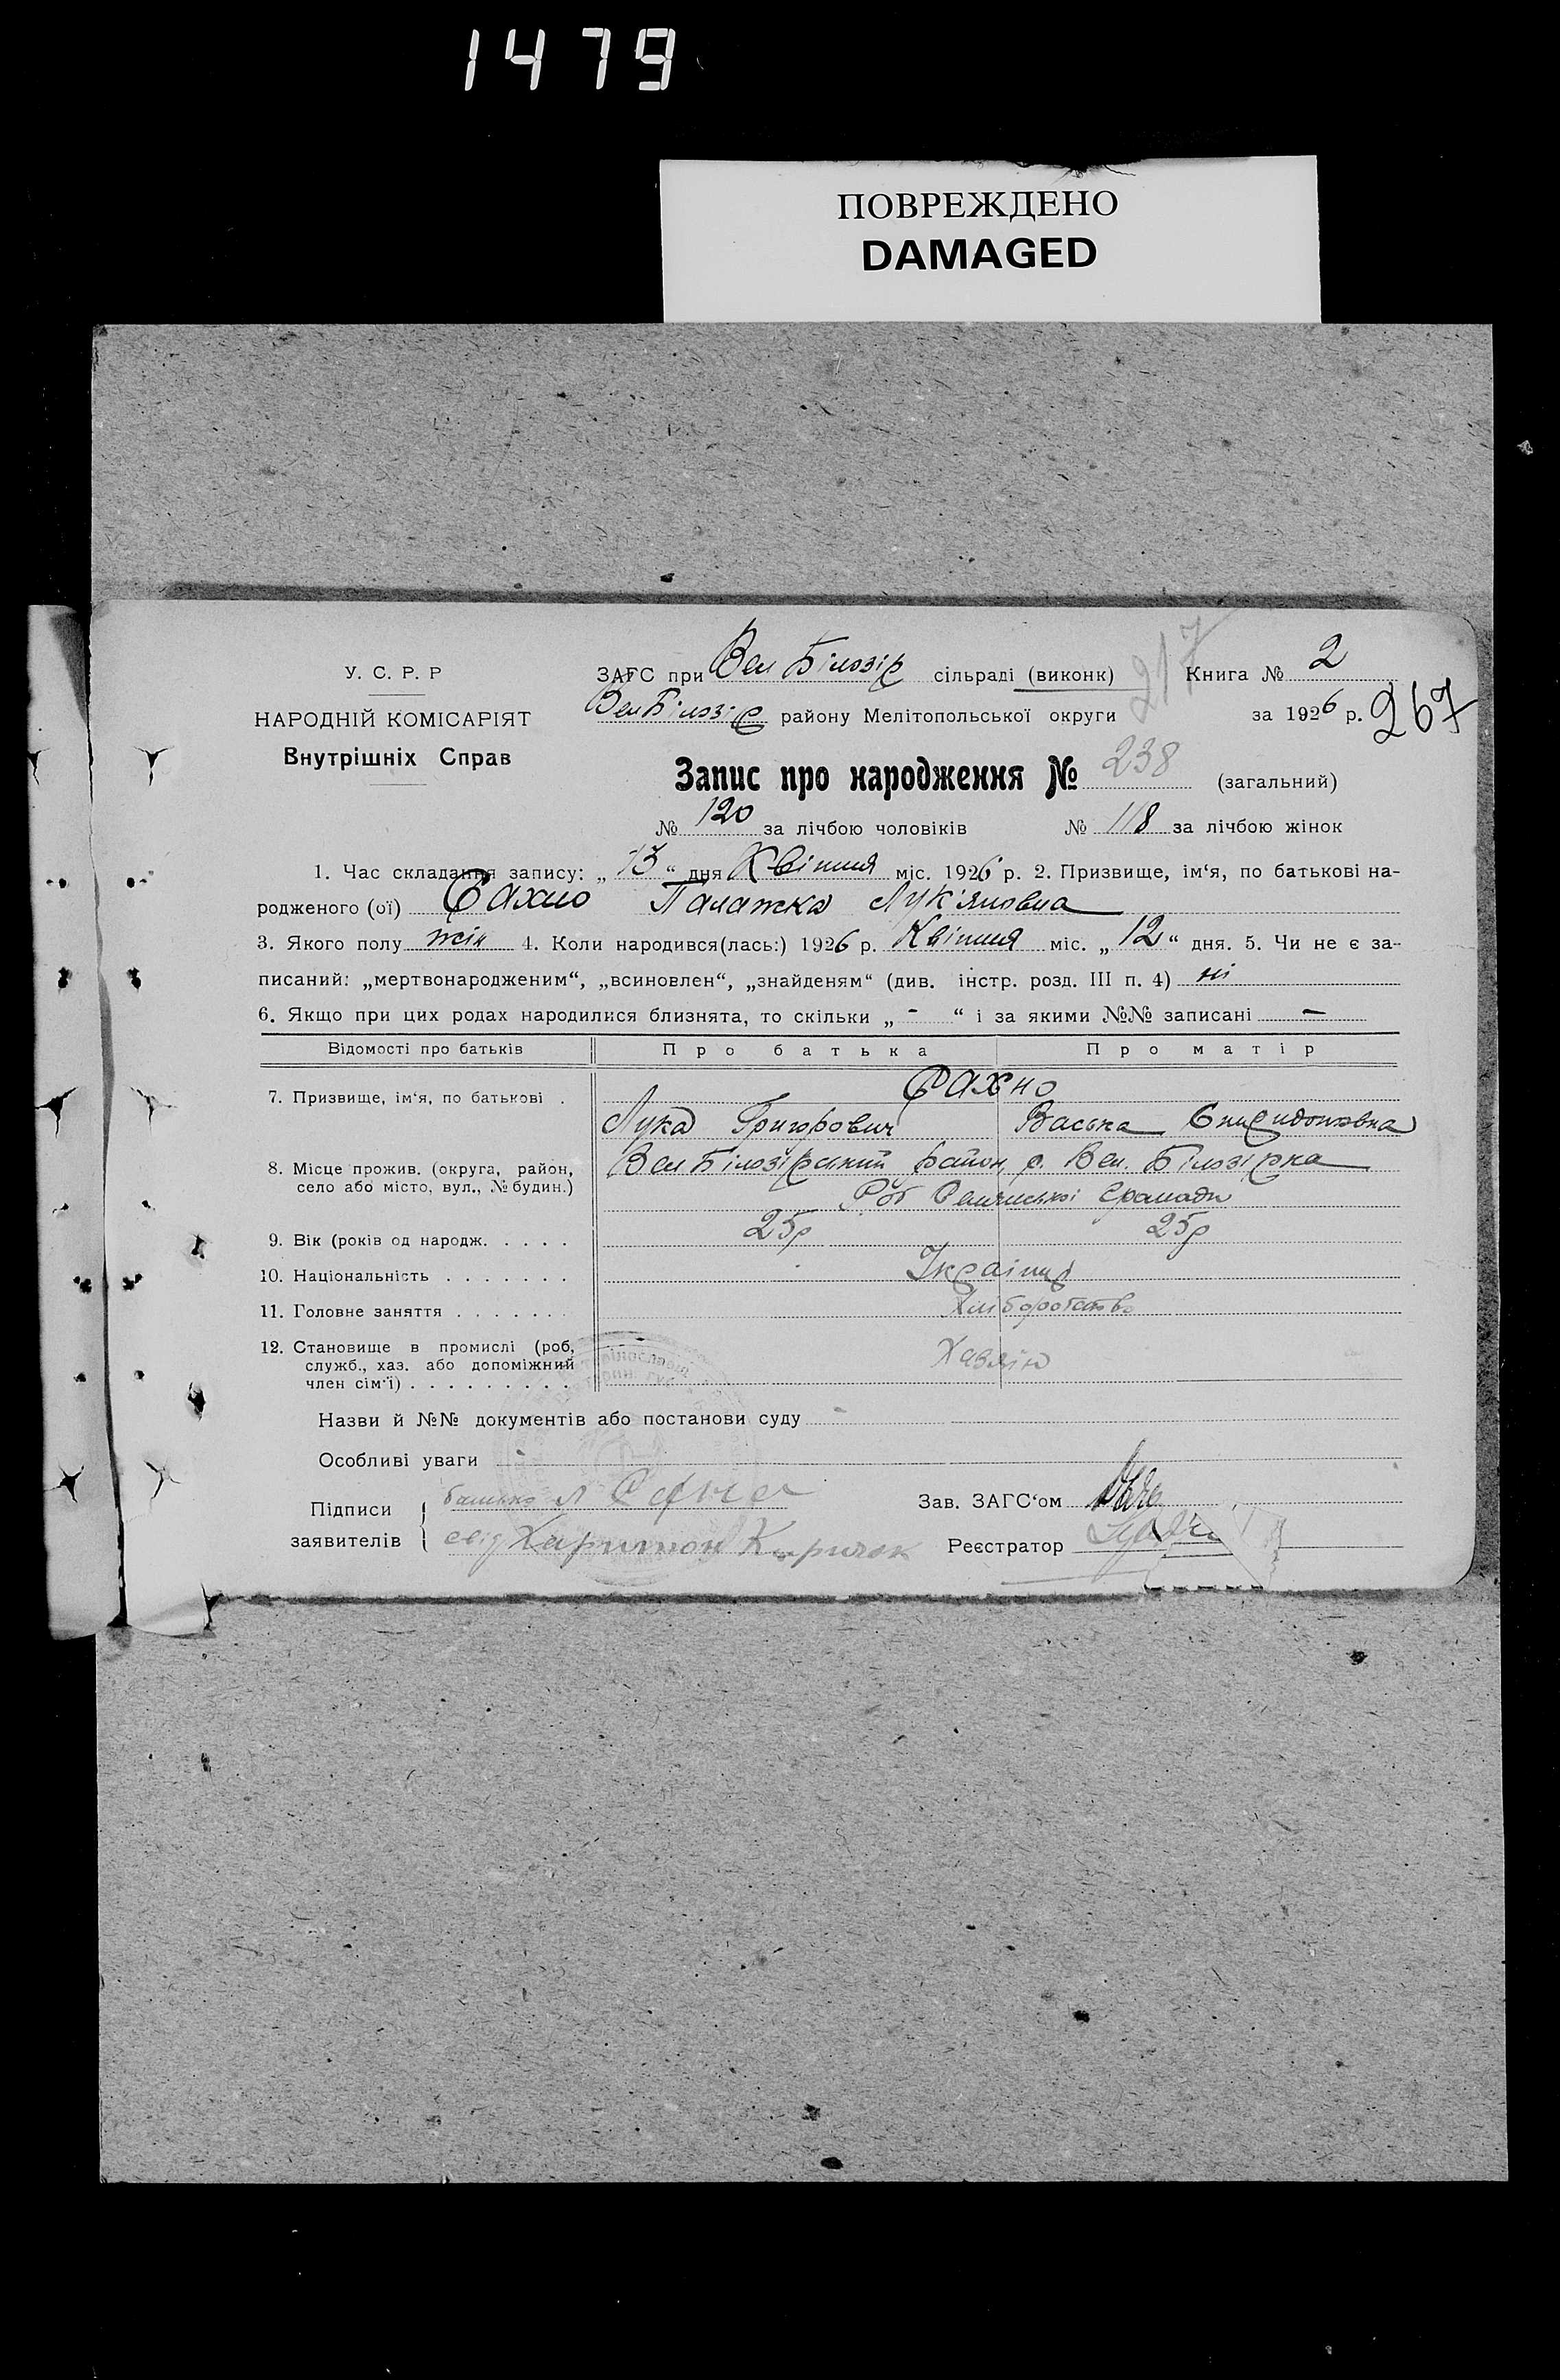 1479
ПОВРЕЖДЕНО
DAMAGED
У. С. Р. Р
НАРОДНІЙ КОМІСАРІЯТ
Внутрішніх Справ
ЗАГС при Вел Білозір сільраді (виконк) 217 Книга № 2
Вел Білозір району Мелітопольської округи за 1926 р. 267
Запис про народження № 238 (загальний)
№ 120 за лічбою чоловіків № 118 за лічбою жінок
1. Час складання запису: „13“ дня Квітня міс. 1926 р. 2. Призвище, ім‘я, по батькові на-
родженого (ої) Сахно Палажка Лук'яновна
3. Якого полу жін 4. Коли народився(лась:) 1926 р. Квітня міс. „12“ дня. 5. Чи не є за-
писаний: „мертвонародженим“, „всиновлен“, „знайденям“ (див. інстр. розд. III п. 4) ні
6. Якщо при цих родах народилися близнята, то скільки „-“ і за якими №№ записані -
Відомості про батьків Про батька Про матір
7. Призвище, ім‘я, по батькові . Сахно
Лука Григорович Васька Спиридоновна
8. Місце прожив. (округа, район, село або місто, вул., № будин.) Вел Білозірський район, с. Вел. Білозірка
Громади
9. Вік (років од народж. . . . . 25р 25р
10. Національність . . . . . . . Українці
11. Головне заняття . . . . . . . Хліборобство
12. Становище в промислі (роб, служб., хаз. або допоміжний член сім‘ї) . . . . . . . . . Хазяїн
Назви й №№ документів або постанови суду -
Особливі уваги -
Підписи заявителів батько Л Сахно Зав. ЗАГС‘ом
свід Харитон Киричок Реєстратор